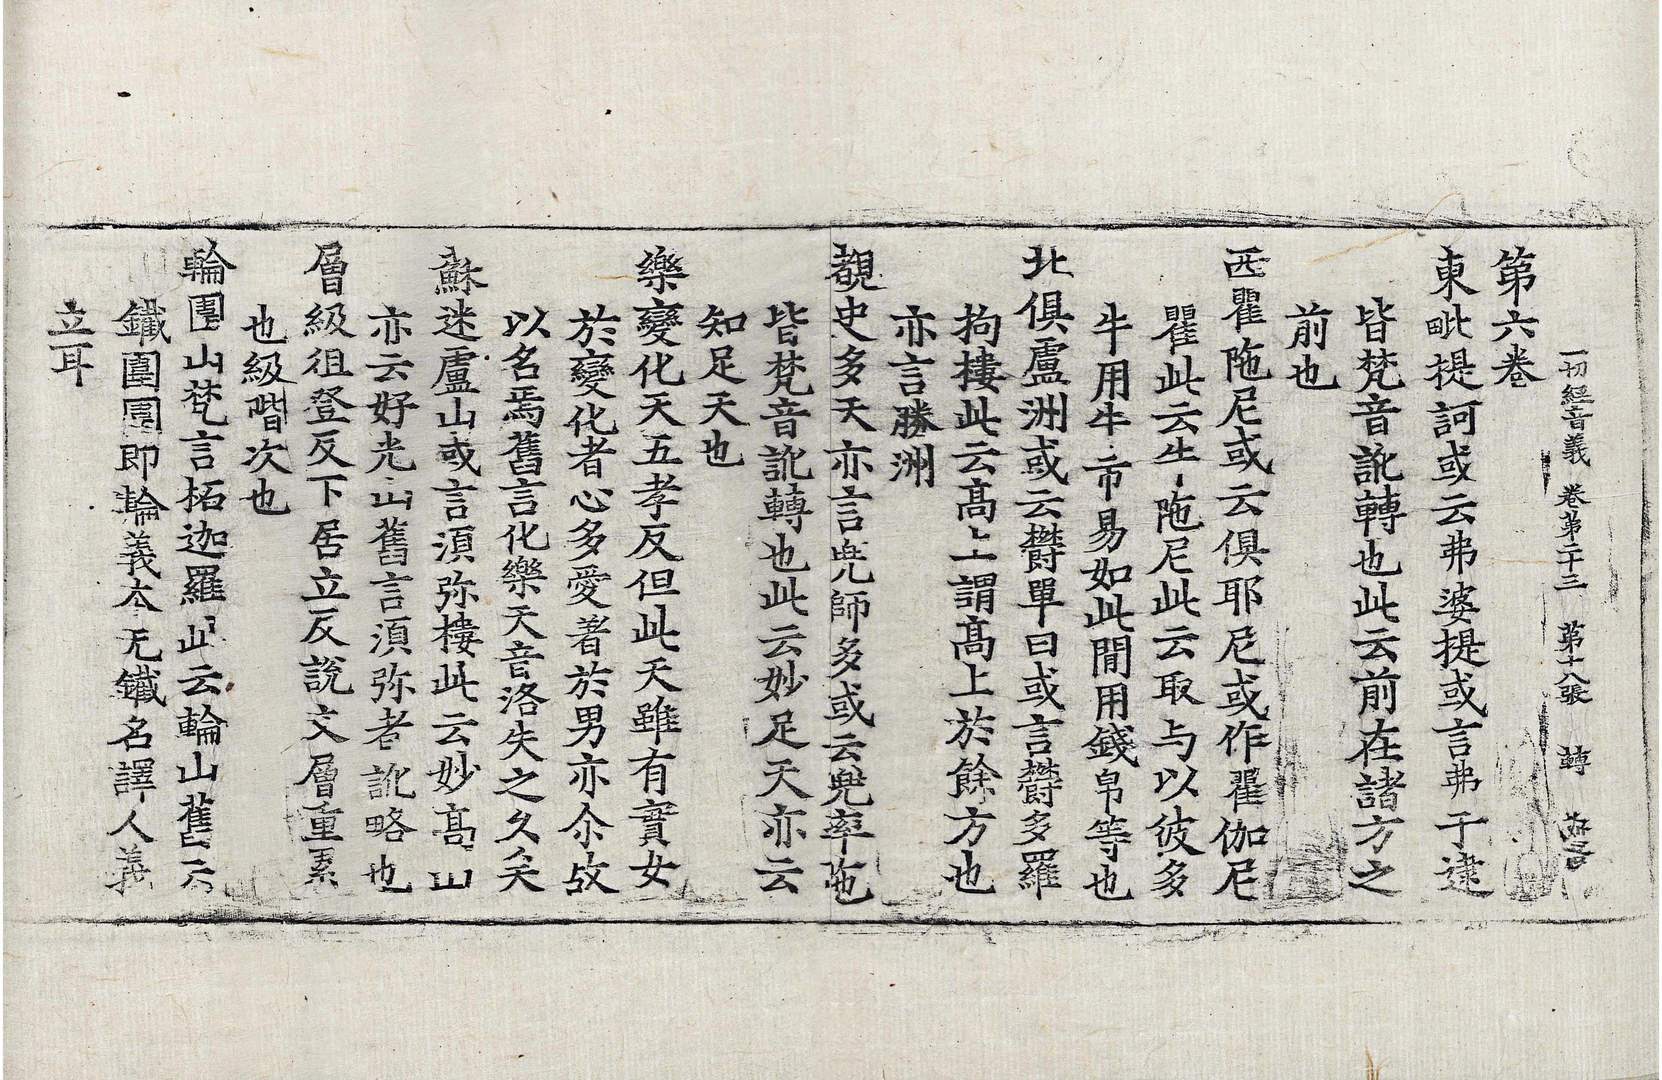 一切經音義 卷第二十三 第十八張 轉
第六卷
東毗提訶或云弗婆提或言弗于逮
皆梵音訛轉也此云前在諸方之
前也
西瞿陁尼或云俱耶尼或作瞿伽尼
瞿此云牛陁尼此云取与以彼多
牛用牛市易如此閒用錢帛等也
北俱盧洲或云欝單曰或言欝多羅
拘樓此云髙上謂髙上於餘方也
亦言勝洲
覩史多天亦言兜師多或云兜率陁
皆梵音訛轉也此云妙足天亦云
知足天也
樂變化天五孝反但此天雖有實女
於變化者心多愛著於男亦尒故
以名焉舊言化樂天音洛失之久矣
蘇迷盧山或言湏弥樓此云妙髙山
亦云好光山舊言湏弥者訛略也
層級徂登反下居立反說文層重累
也級階次也
輪圍山梵言柘迦羅此云輪山舊云
鐵圍圍即輪義夲无鐵名譯人義
立耳